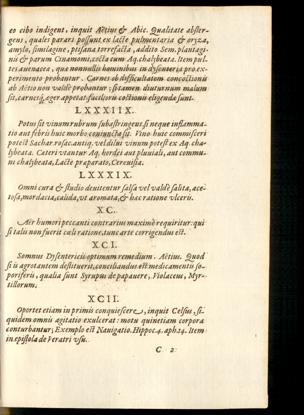 eo cibo indigent, inquit Aëtius & Abic. Qualitate abster-
gens, quales parari possunt ex lacte pulmentaria & oryza,
amylo, similagine, ptisana torrefacta, addito Sem. plantagi-
nis & parum Cinamomi, cocta cum Aq. chalybeata. Item pul-
tes avenacea, qua nonnullis hominibus in dysenteria pro ex-
perimento probantur. Carnes ob difficultatem concoctionis
ab Aëtio non valde probantur; si tamen diuturnum malum
sit, carnes & æger appetat facilioris coctionis eligenda sunt.
LXXXIIX.
Potus sit vinum rubrum subastringens, si neque inflamma-
tio aut febris huic morbo coniuncta sit. Vino huic commisceri
potest Sacchar. rosac. antiq. vel dilui vinum potest ex Aq. cha-
lybeata. Cateri utantur Aq. hordei aut pluviali, aut commu-
ni chalybeata, Lacte praparato, Cerevisia.
LXXXIX.
Omni cura & studio devitentur salsa vel valde salita, ace-
tosa, mordacia, calida, ut aromata, & hac ratione ulceris.
XC.
Aër humori peccanti contrarius maximè requiritur: qui
si talis non fuerit cali ratione, tunc arte corrigendus est.
XCI.
Somnus Dysentericis optimum remedium. Aëtius. Quod
si is agrotantem destituerit, conciliandus est medicamentis so-
poriferis, qualia sunt Syrupus de papavere, Violaceus, Myr-
tillorum.
XCII.
Oportet etiam in primis conquiescere, inquit Celsus, si-
quidem omnis agitatio exulcerat: motu quinetiam corpora
conturbantur; Exemplo est Navigatio. Hippoc. 4. aph. 24. Item
in epistola de Veratri usu.
C 2